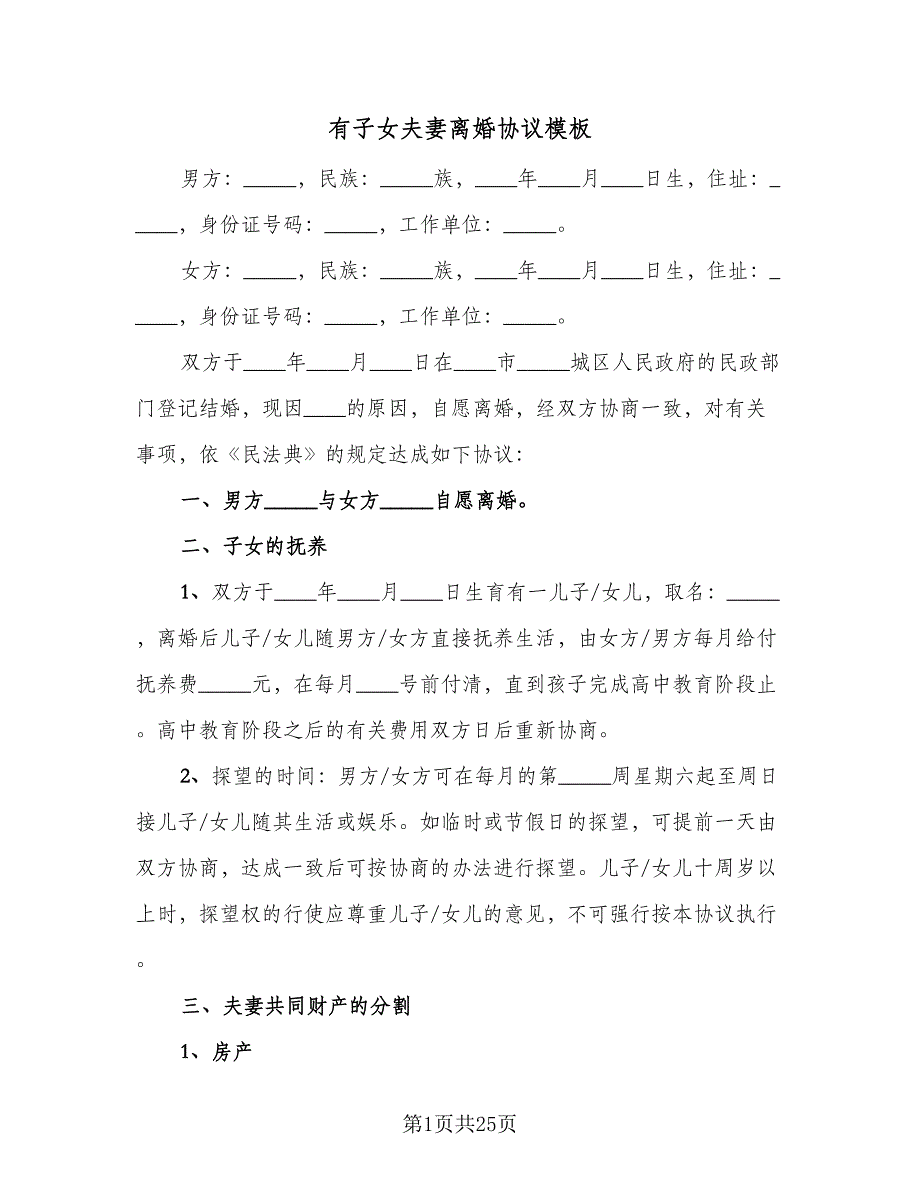 有子女夫妻离婚协议模板
男方：_____，民族：_____族，____年____月____日生，住址：_
____，身份证号码：_____，工作单位：_____。
女方：_____，民族：_____族，____年____月____日生，住址：_
____，身份证号码：_____，工作单位：_____。
双方于____年____月____日在____市_____城区人民政府的民政部
门登记结婚，现因____的原因，自愿离婚，经双方协商一致，对有关
事项，依《民法典》的规定达成如下协议：
一、男方_____与女方_____自愿离婚。
二、子女的抚养
1、双方于____年____月____日生育有一儿子/女儿，取名：_____
，离婚后儿子/女儿随男方/女方直接抚养生活，由女方/男方每月给付
抚养费_____元，在每月____号前付清，直到孩子完成高中教育阶段止
。高中教育阶段之后的有关费用双方日后重新协商。
2、探望的时间：男方/女方可在每月的第_____周星期六起至周日
接儿子/女儿随其生活或娱乐。如临时或节假日的探望，可提前一天由
双方协商，达成一致后可按协商的办法进行探望。儿子/女儿十周岁以
上时，探望权的行使应尊重儿子/女儿的意见，不可强行按本协议执行
。
三、夫妻共同财产的分割
1、房产
第1页共25页